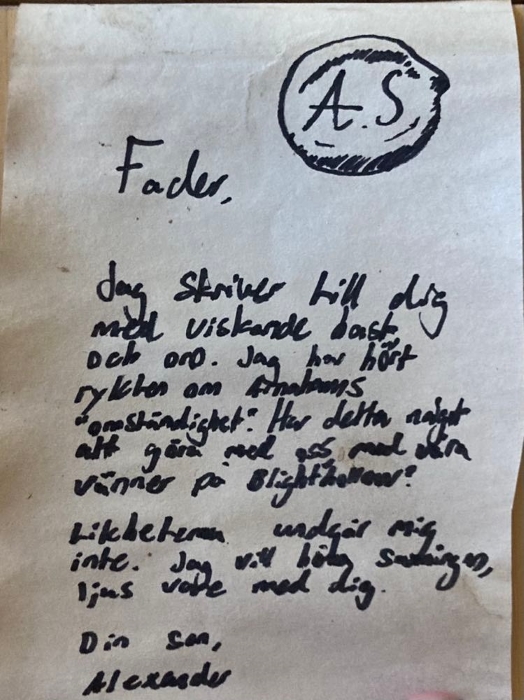 A.S
Fader,
Jag skriver till dig
med viskande hast
och oro. Jag har hört
rykten om
"omständighet". Har detta något
att göra med oss med våra
vänner på Blighthollow?
Likheterna undgår mig
inte. Jag vill höra sanningen,
ljus vare med dig.
Din son,
Alexander